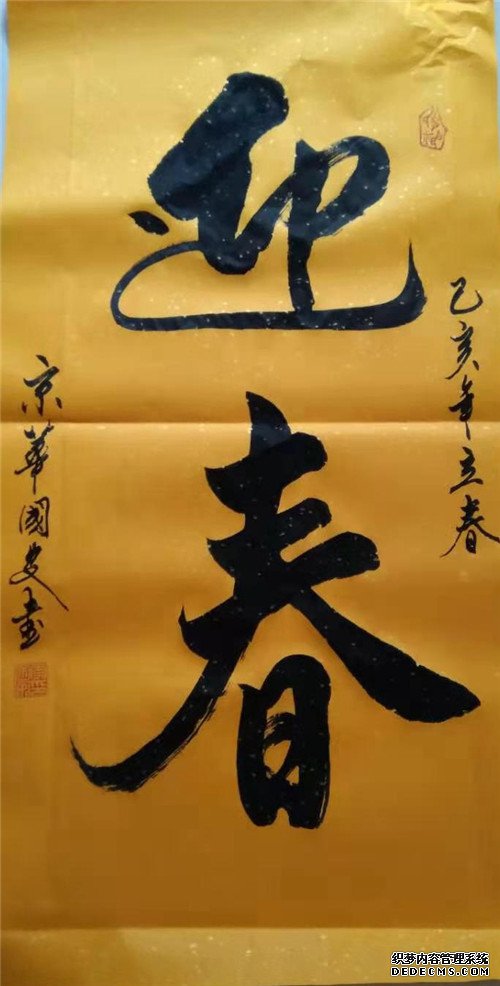 迎春
乙亥年立春
京华國安書
织梦内容管理系统
DEDECMS.COM